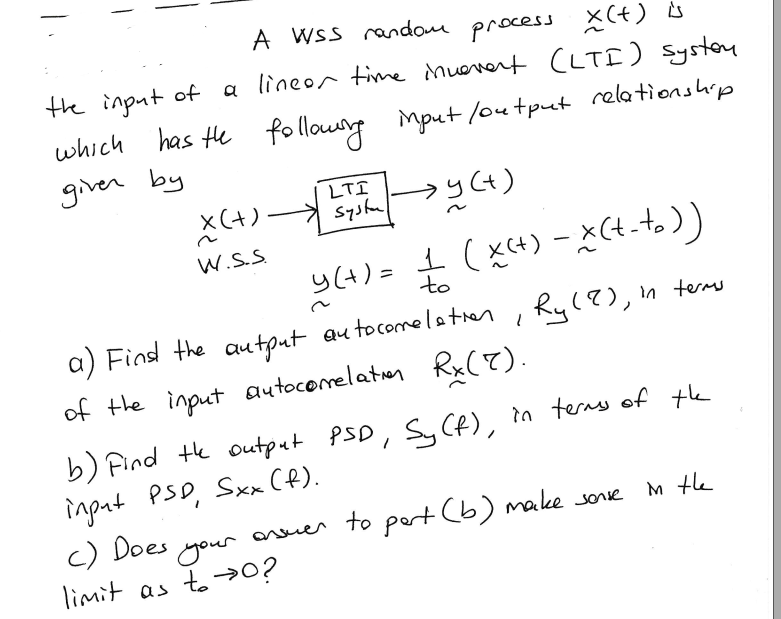 A WSS random process x(t) is
the input of a linear time invarent (LTI) system
which has the following input/output relationship
given by
x(t) → LTI System → y(t)
W.S.S.
y(t) = 1/to (x(t) - x(t-to))
a) Find the output autocorrelation, Ry(τ), in terms
of the input autocorrelation Rx(τ).
b) Find the output PSD, Sy(f), in terms of the
input PSD, Sxx(f).
c) Does your answer to part (b) make sense in the
limit as to→0?